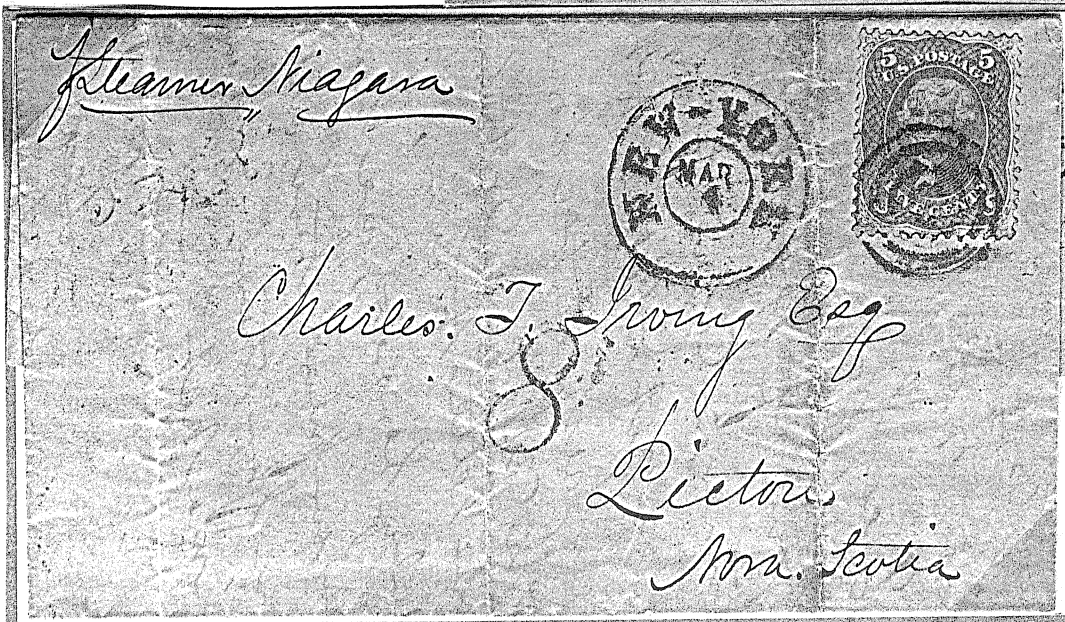 p Steamer Niagara
NEW-YORK
MAR
5 5
U.S. POSTAGE
FIVE CENTS
5
Charles. T. Irving Esq
8
Pictou
Nova. Scotia